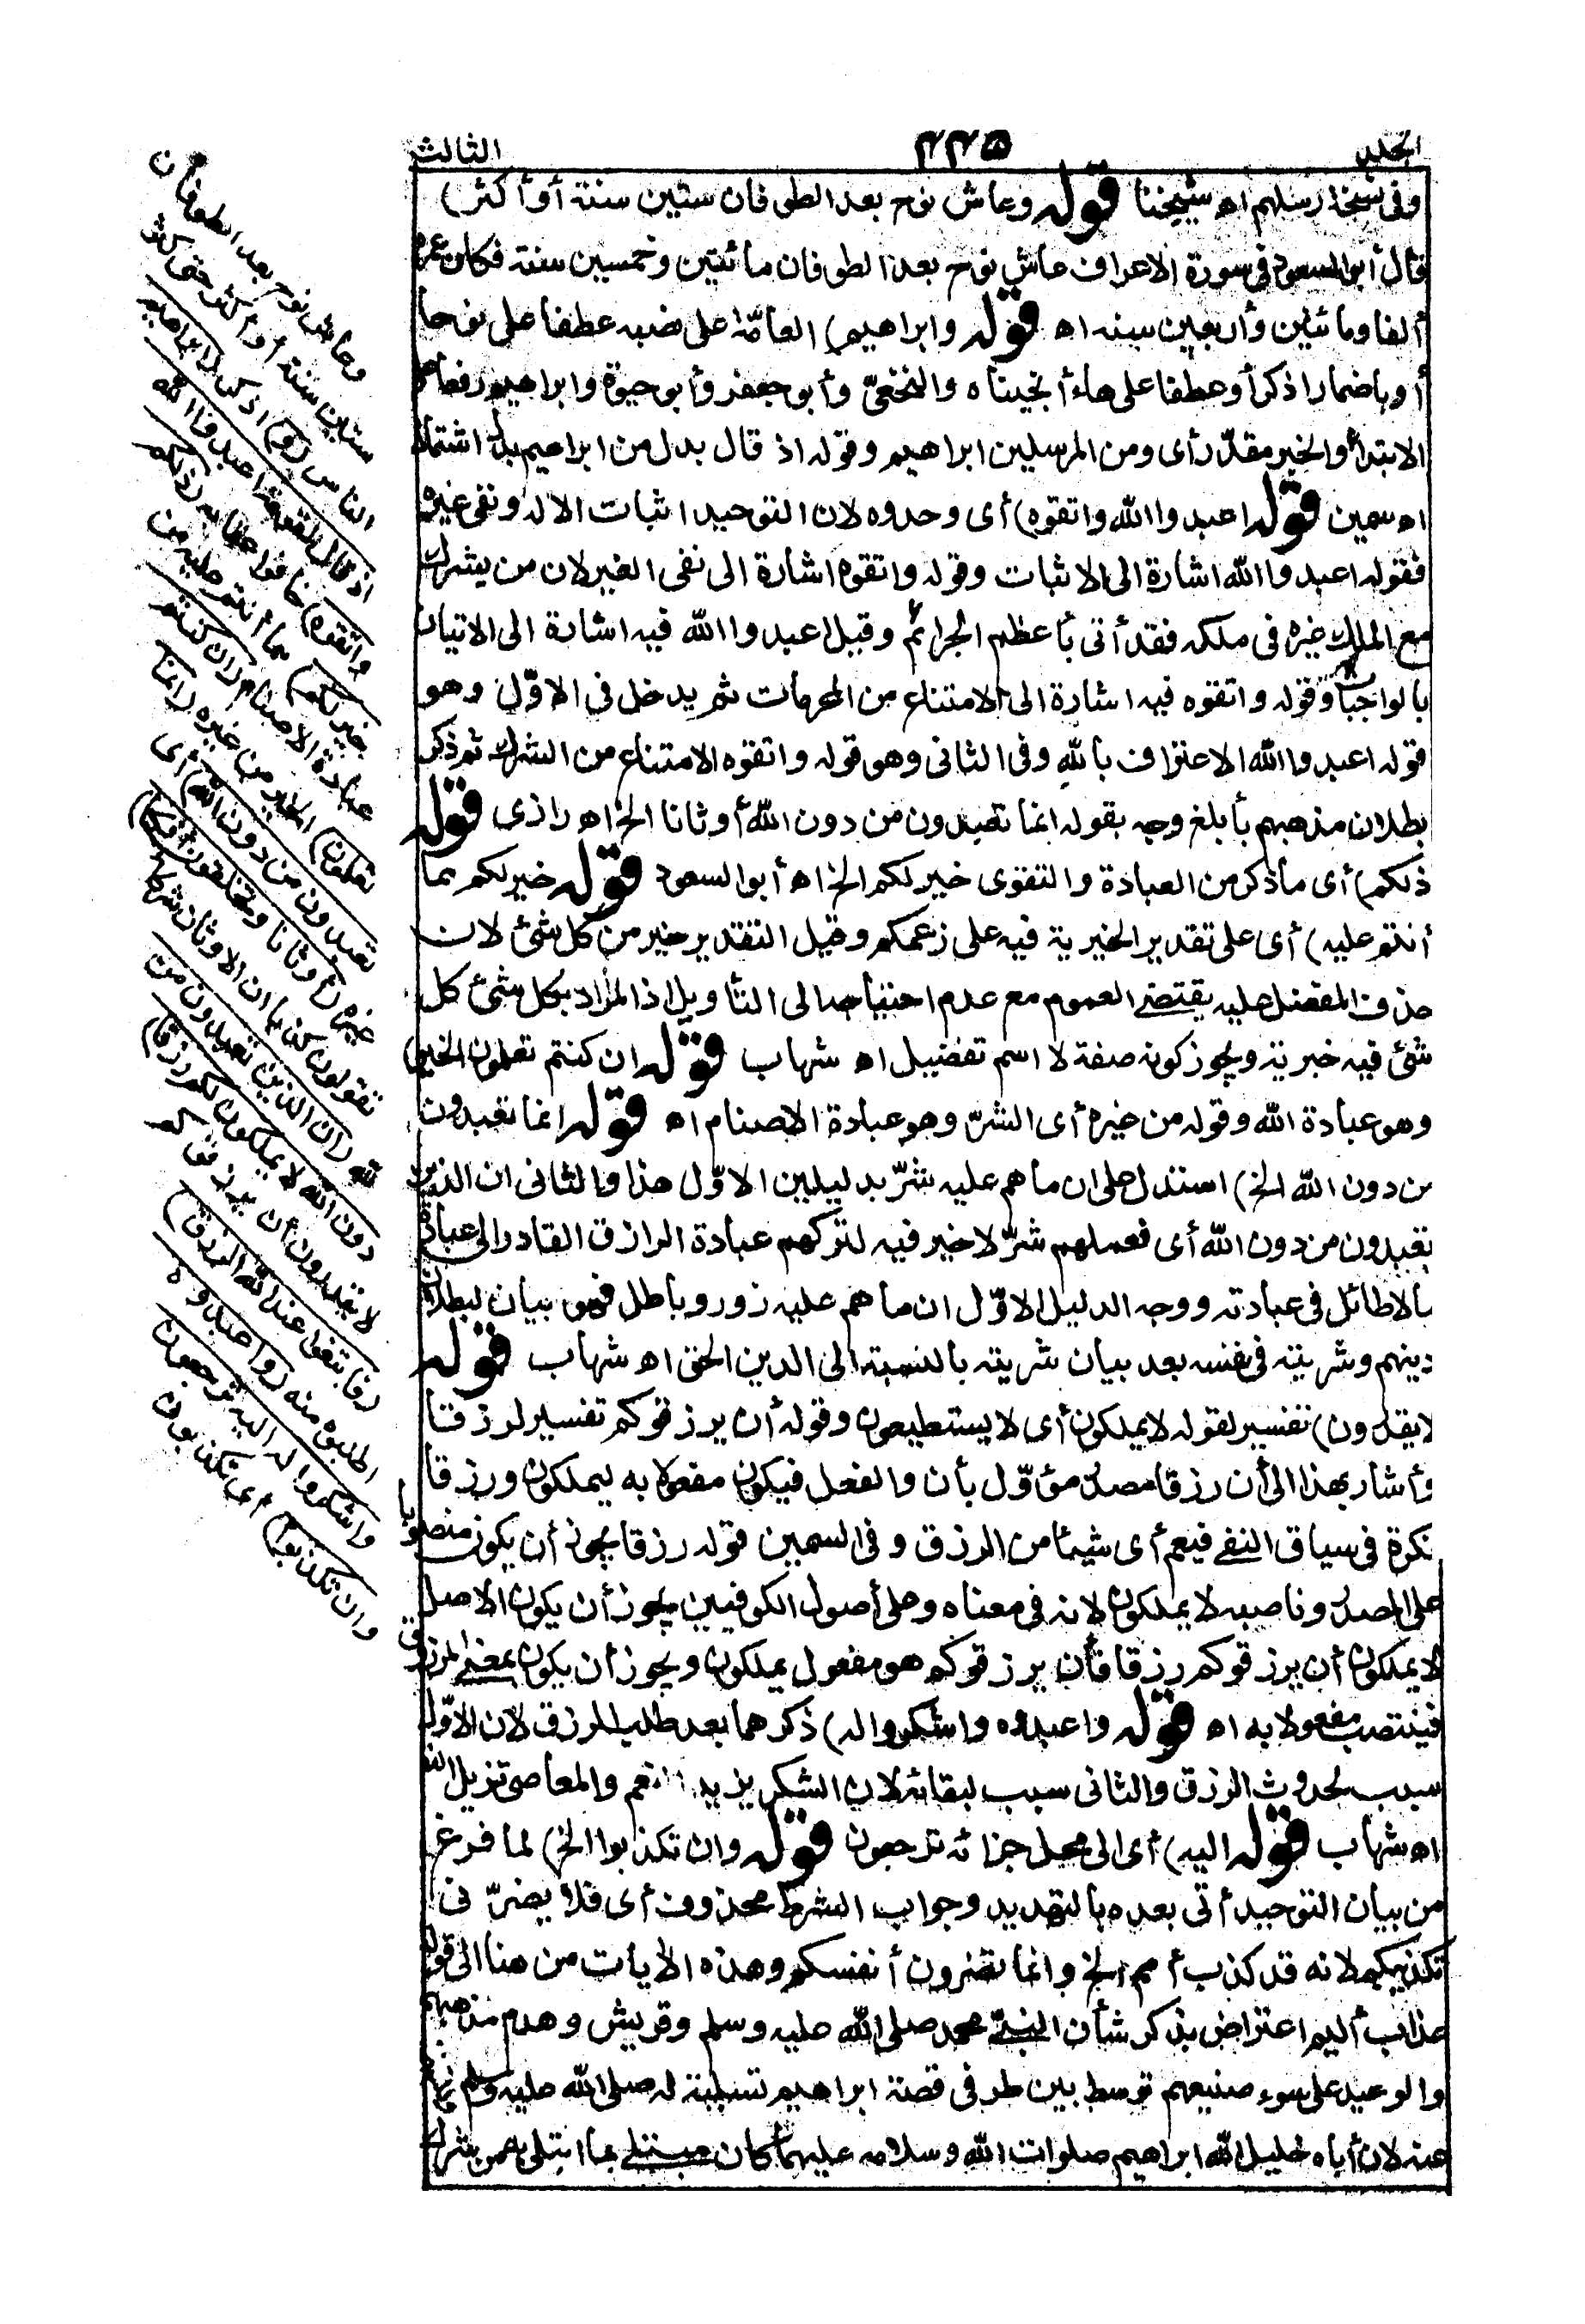 الجلد
٣٣٥
الثالث
وفى نسخة رسلهم اه شيخنا قوله وعاش نوح بعد الطوفان ستين سنة أوأكثر)
قال أبو السعود فى سورة الاعراف عاش نوح بعد الطوفان مائتين وخمسين سنة فكان عمره
ألفا ومائتين وأربعين سنه اه قوله وابراهيم) العامّة على نصبه عطفا على نوحا
أو باضمار اذكر أو عطفا على هاء أنجيناه والنخعىّ وأبو جعفر وأبو حيوة وابراهيم رفعا على
الابتداء والخبر مقدّر أى ومن المرسلين ابراهيم وقوله اذ قال بدل من ابراهيم بدل اشتمال
اه سمين قوله اعبدوا الله واتقوه) أى وحدوه لان التوحيد اثبات الاله ونفى غيره
فقوله اعبدوا الله اشارة الى الاثبات وقوله واتقوه اشارة الى نفى الغير لان من يشرك
مع الملك غيره فى ملكه فقد أتى بأعظم الجرائم وقيل اعبدوا الله فيه اشارة الى الاتيان
بالواجبات وقوله واتقوه فيه اشارة الى الامتناع من المحرمات ثم يدخل فى الاوّل وهو
قوله اعبدوا الله الاعتراف بالله وفى الثانى وهو قوله واتقوه الامتناع من الشرك ثم ذكر
بطلان مذهبهم بأبلغ وجه بقوله انما تعبدون من دون الله أوثانا الخ اه رازى قوله
ذلكم) أى ماذكر من العبادة والتقوى خير لكم الخ اه أبو السعود قوله خير لكم مما
أنتم عليه) أى على تقدير الخيرية فيه على زعمكم وقيل التقدير خير من كل شئ لان
حذف المفضل عليه يقتضى العموم مع عدم احتياجه الى التأويل اذ المراد بكل شئ كل
شئ فيه خيرية ويجوز كونه صفة لا اسم تفضيل اه شهاب قوله ان كنتم تعلمون الخير)
وهو عبادة الله وقوله من غيره أى الشرّ وهو عبادة الاصنام اه قوله انما تعبدون
من دون الله الخ) استدل على ان ما هم عليه شرّ بدليلين الاوّل هذا والثانى ان الذين
تعبدون من دون الله أى فعملهم شرّ لا خير فيه لتركهم عبادة الرازق القادر الى عبادة
مالاطائل فى عبادته ووجه الدليل الاوّل ان ما هم عليه زور وباطل فهو بيان لبطلان
دينهم وشريته فى نفسه بعد بيان شريته بالنسبة الى الدين الحق اه شهاب قوله
لايقدرون) تفسير لقوله لايملكون أى لايستطيعون وقوله أن يرزقوكم تفسير لرزقا
وأشار بهذا الى أن رزقا مصدر مؤوّل بأن والفعل فيكون مفعولا به ليملكون ورزقا
نكرة فى سياق النفى فيعم أى شيئا من الرزق وفى السمين قوله رزقا يجوز أن يكون منصوبا
على المصدر وناصبه لايملكون لانه فى معناه وعلى أصول الكوفيين يجوز أن يكون الاصل
لايملكون أن يرزقوكم رزقا فأن يرزقوكم هو مفعول يملكون ويجوز أن يكون بمعنى المرزوق
فينتصب مفعولا به اه قوله واعبدوه واشكروا له) ذكرهما بعد طلب الرزق لان الاوّل
سبب لحدوث الرزق والثانى سبب لبقائه لان الشكر يزيد النعم والمعاصى تزيل
اه شهاب قوله اليه) أى الى محل جزائه ترجعون قوله وان تكذبوا الخ) لما فرغ
من بيان التوحيد أتى بعده بالتهديد وجواب الشرط محذوف أى فلا يضرّنى
تكذيبكم لانه قد كذب أمم الخ وانما تضرون أنفسكم وهذه الآيات من هنا الى قوله
عذاب أليم اعتراض بذكر شأن النبىّ محمد صلى الله عليه وسلم وقريش وهدم مذهبهم
والوعيد على سوء صنيعهم توسط بين طرفى قصة ابراهيم تسلية له صلى الله عليه وسلم
عنه لان أباه خليل الله ابراهيم صلوات الله وسلامه عليهما كان مبتلى بما ابتلى به من شرك
وعاش نوح بعد الطوفان
ستين سنة أو أكثر حتى كثر
الناس (و) اذكر (ابراهيم
اذ قال لقومه اعبدوا الله
واتقوه) خافوا عقابه (ذلكم
خير لكم) مما أنتم عليه من
عبادة الاصنام (ان كنتم
تعلمون) الخير من غيره (انما
تعبدون من دون الله) أى
غيره (أوثانا وتخلقون افكا)
تقولون كذبا ان الاوثان شركاء
لله (ان الذين تعبدون من
دون الله لا يملكون لكم رزقا)
لا يقدرون أن يرزقوكم
(فابتغوا عند الله الرزق)
اطلبوه منه (واعبدوه
واشكروا له اليه ترجعون
وان تكذبوا) أى تكذبون